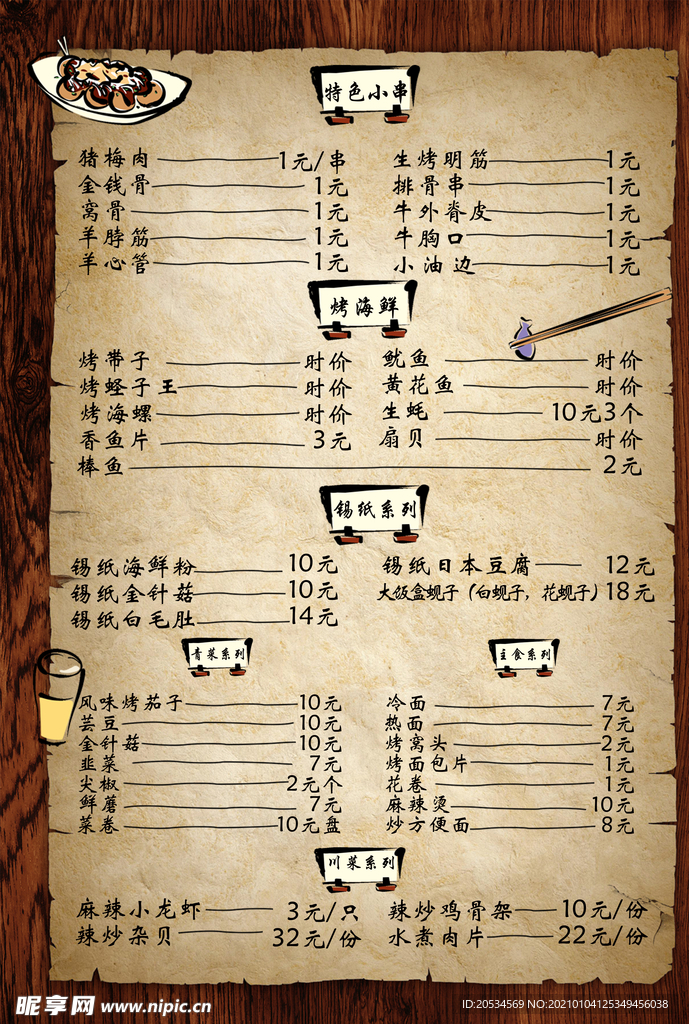 特色小串
猪梅肉 1元/串 生烤明筋 1元
金钱骨 1元 排骨串 1元
窝骨 1元 牛外脊皮 1元
羊脖筋 1元 牛胸口 1元
羊心管 1元 小油边 1元
烤海鲜
烤带子 时价 鱿鱼 时价
烤蛏子王 时价 黄花鱼 时价
烤海螺 时价 生蚝 10元3个
香鱼片 3元 扇贝 时价
棒鱼 2元
锡纸系列
锡纸海鲜粉 10元 锡纸日本豆腐 12元
锡纸金针菇 10元 大饭盒蚬子（白蚬子，花蚬子）18元
锡纸白毛肚 14元
青菜系列 主食系列
风味烤茄子 10元 冷面 7元
芸豆 10元 热面 7元
金针菇 10元 烤窝头 2元
韭菜 7元 烤面包片 1元
尖椒 2元个 花卷 1元
鲜蘑 7元 麻辣烫 10元
菜卷 10元盘 炒方便面 8元
川菜系列
麻辣小龙虾 3元/只 辣炒鸡骨架 10元/份
辣炒杂贝 32元/份 水煮肉片 22元/份
昵享网 www.nipic.cn ID:20534569 NO:20210104125349456038